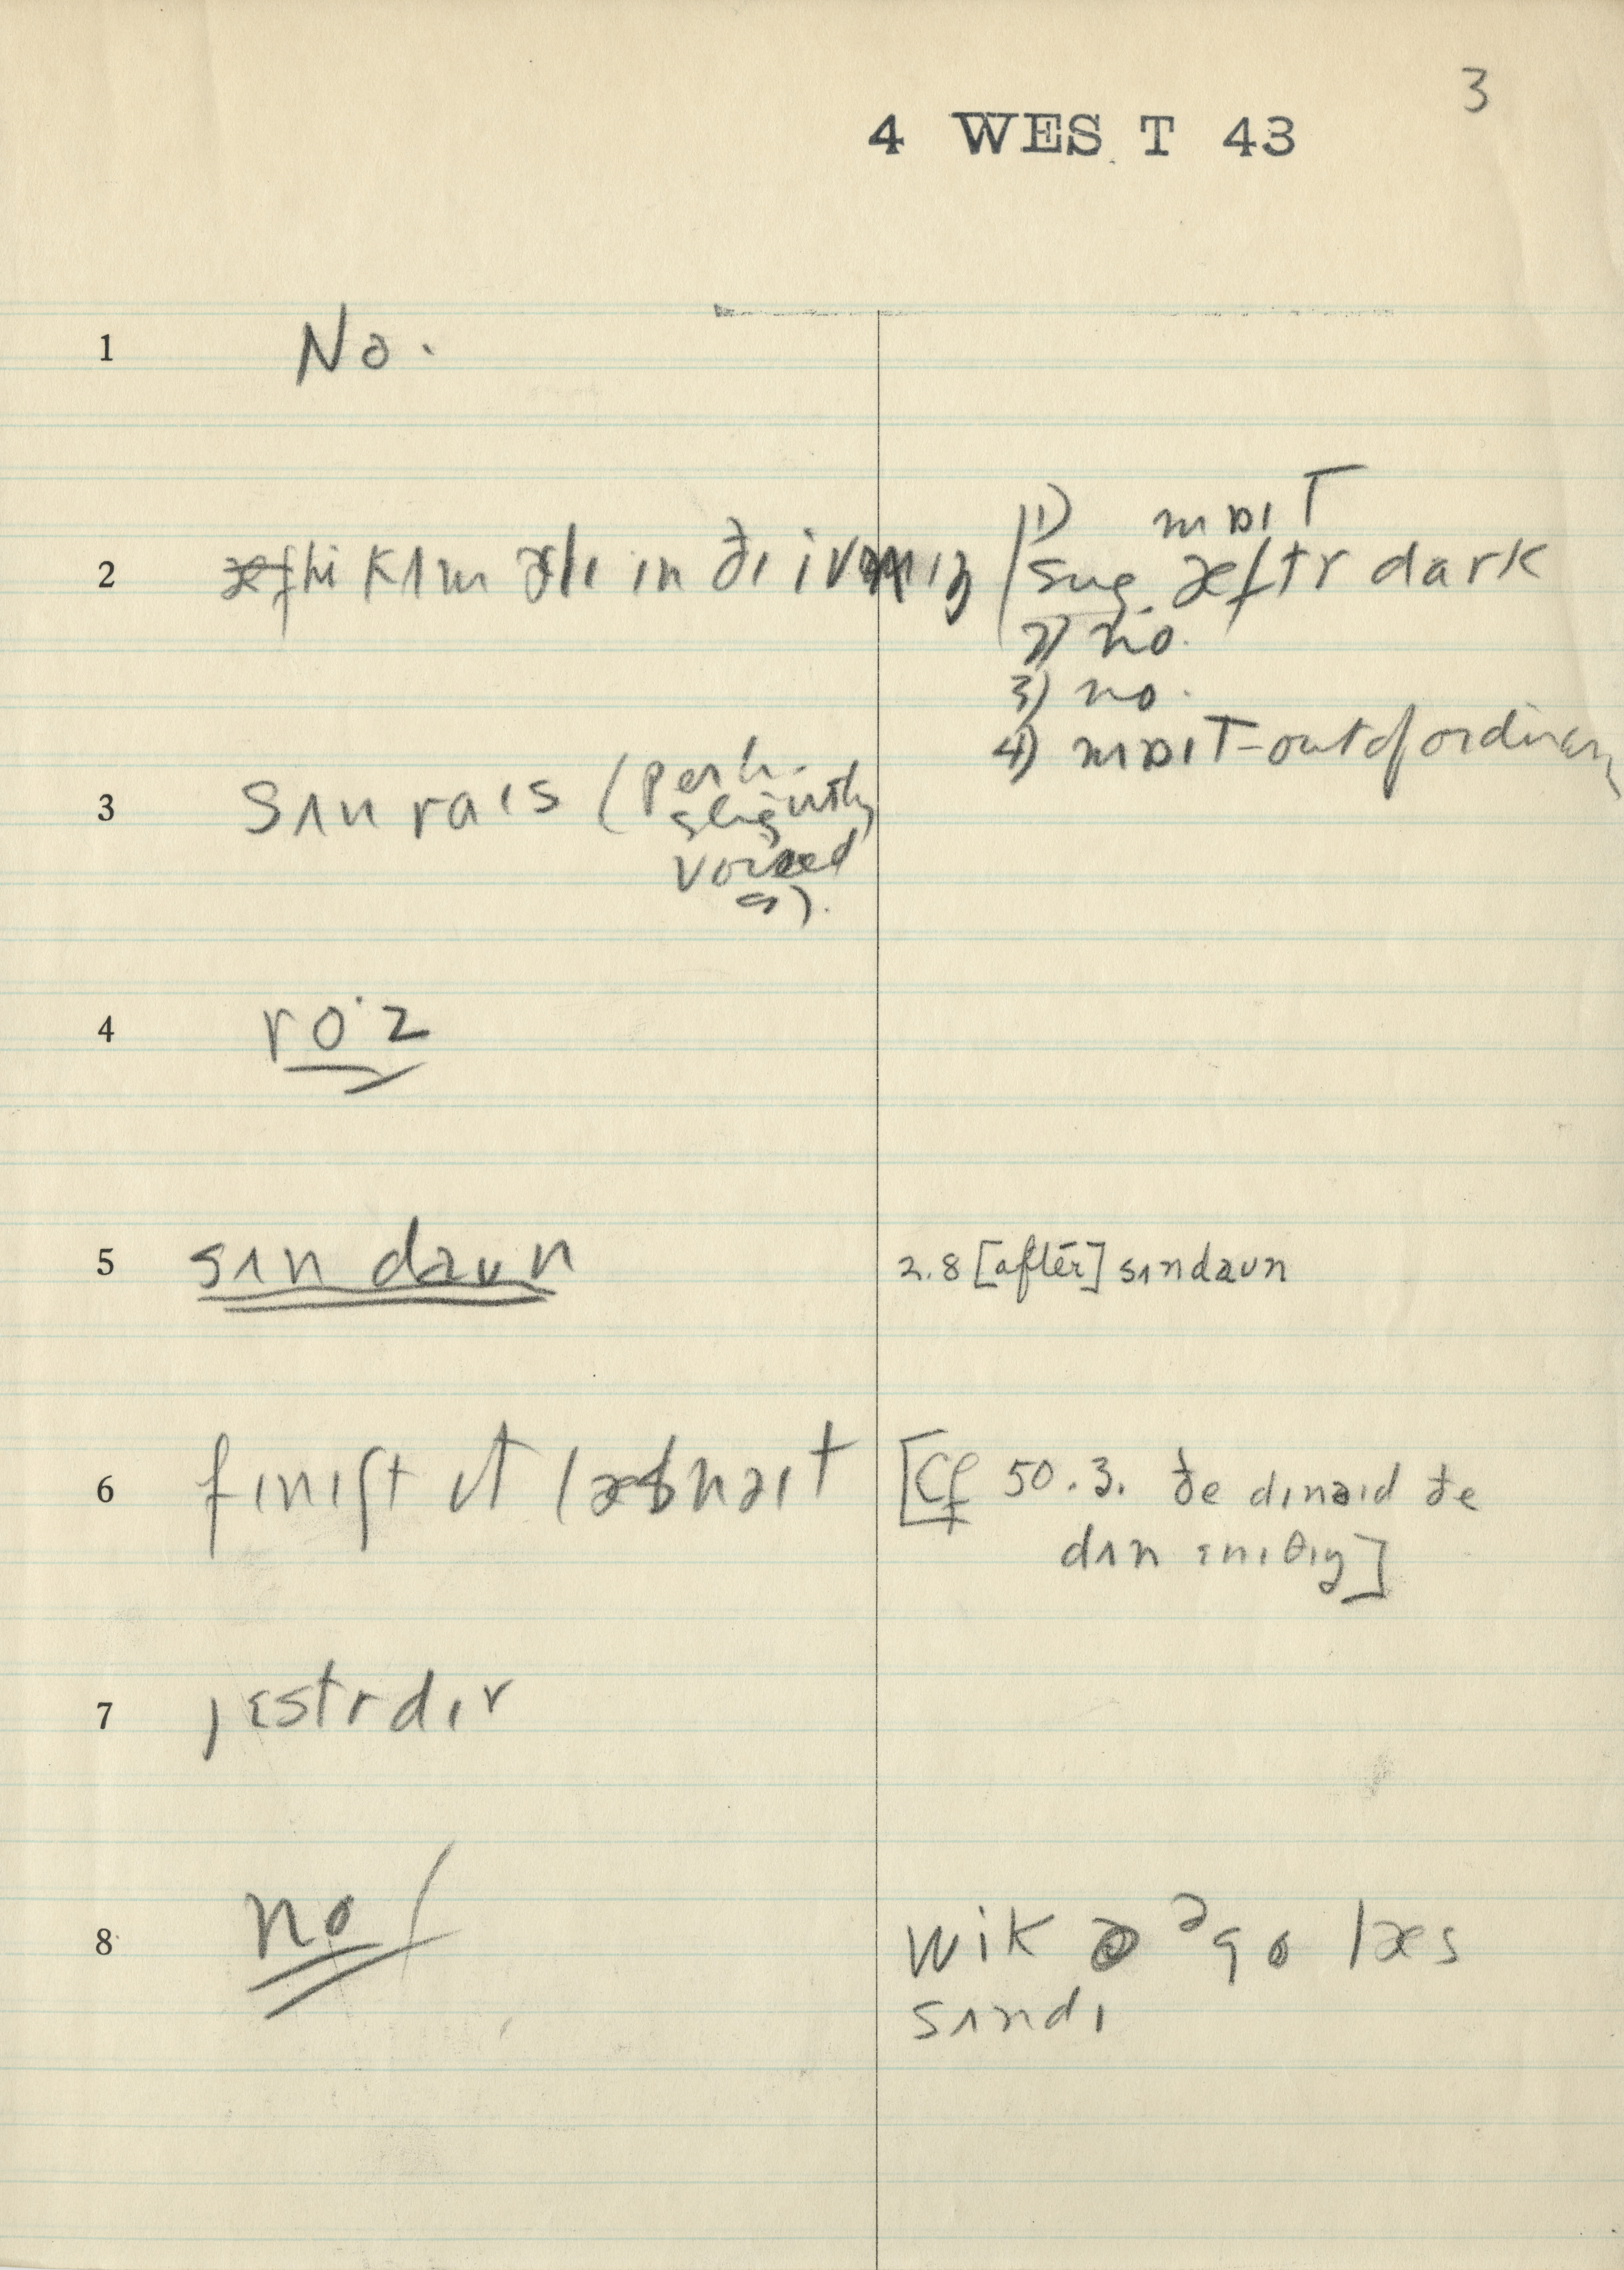 3
4 WEST 43
1 No.
2 hi kʌm ɪn ðɪ ivnɪŋ
1) mɒɪT
sug. æftr dark
2) no.
3) no.
4) mɒɪT–out of ordinary
3 sʌn raɪs (perh.
slightly
voiced
s).
4 ro·z
5 sʌn daʊn
2.8 [after] sʌndaʊn
6 fɪnɪʃt ɪt læsnaɪt
[Cf 50.3. ðe dɪnaɪd ðe
dʌn ɛnɪθɪŋ]
7 jɛstrdɪr
8 no/
wik ə go læs
sʌndɪ